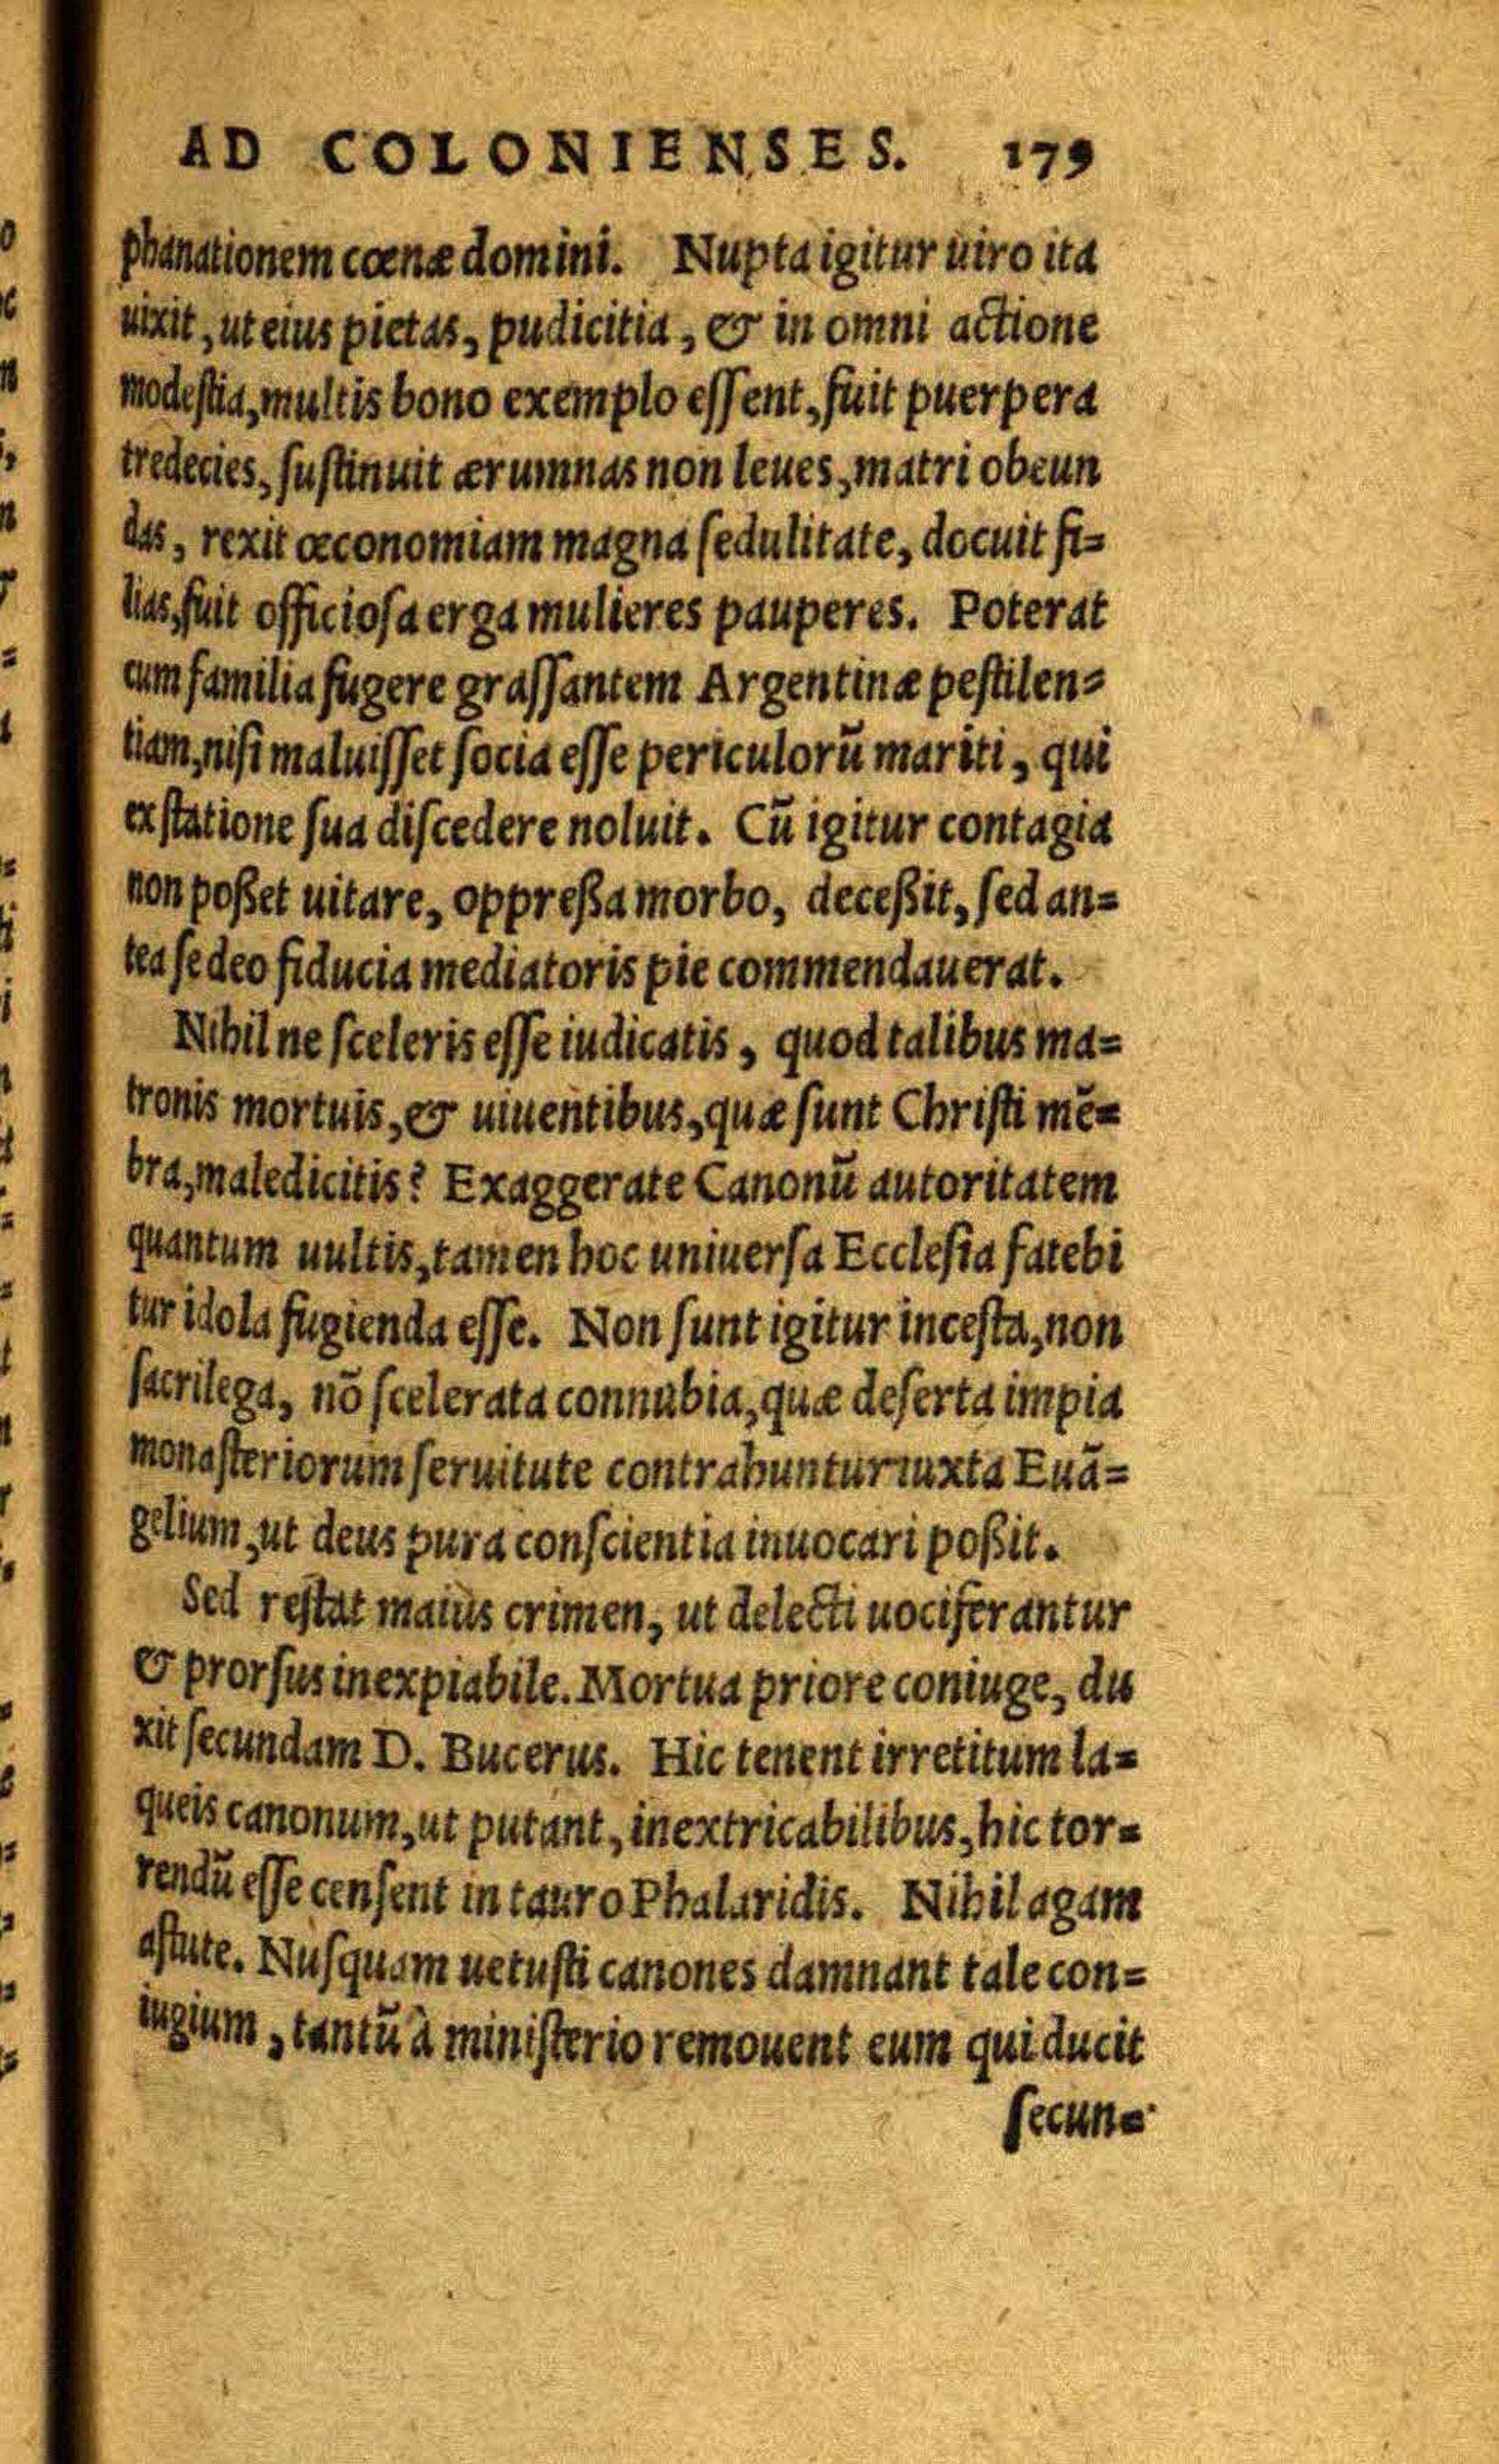 AD COLONIENSES. 179
phanationem cœnæ domini. Nupta igitur uiro ita
uixit, ut eius pietas, pudicitia, & in omni actione
modeſtia, multis bono exemplo eſſent, fuit puerpera
tredecies, ſuſtinuit ærumnas non leues, matri obeun
das, rexit œconomiam magna ſedulitate, docuit fi=
lias, fuit officioſa erga mulieres pauperes. Poterat
cum familia fugere graſſantem Argentinæ peſtilen=
tiam, niſi maluiſſet ſocia eſſe periculorũ mariti, qui
ex ſtatione ſua diſcedere noluit. Cũ igitur contagia
non poßet uitare, oppreßa morbo, deceßit, ſed an=
tea ſe deo fiducia mediatoris pie commendauerat.
Nihil ne ſceleris eſſe iudicatis, quod talibus ma=
tronis mortuis, & uiuentibus, quæ ſunt Chriſti mē=
bra, maledicitis? Exaggerate Canonũ autoritatem
quantum uultis, tamen hoc uniuerſa Eccleſia fatebi
tur idola fugienda eſſe. Non ſunt igitur inceſta, non
ſacrilega, nō ſcelerata connubia, quæ deſerta impia
monaſteriorum ſeruitute contrahuntur iuxta Euā=
gelium, ut deus pura conſcientia inuocari poßit.
Sed reſtat maius crimen, ut delecti uociferantur
& prorſus inexpiabile. Mortua priore coniuge, du
xit ſecundam D. Bucerus. Hic tenent irretitum la=
queis canonum, ut putant, inextricabilibus, hic tor=
rendũ eſſe cenſent in tauro Phalaridis. Nihil agam
aſtute. Nuſquam uetuſti canones damnant tale con=
iugium, tantũ à miniſterio remouent eum qui ducit
ſecun=